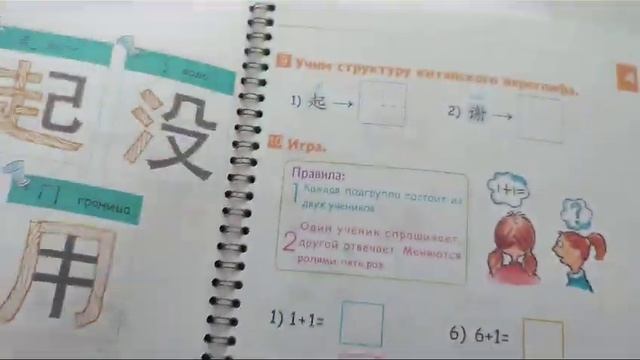 起
没
冂 граница
用
9 Учим структуру китайского иероглифа.
1) 起 →
2) 谢 →
10 Игра.
Правила:
1 Каждая подгруппа состоит из
двух учеников.
2 Один ученик спрашивает,
другой отвечает. Меняются
ролями пять раз.
1+1=
?
1) 1+1=
6) 6+1=